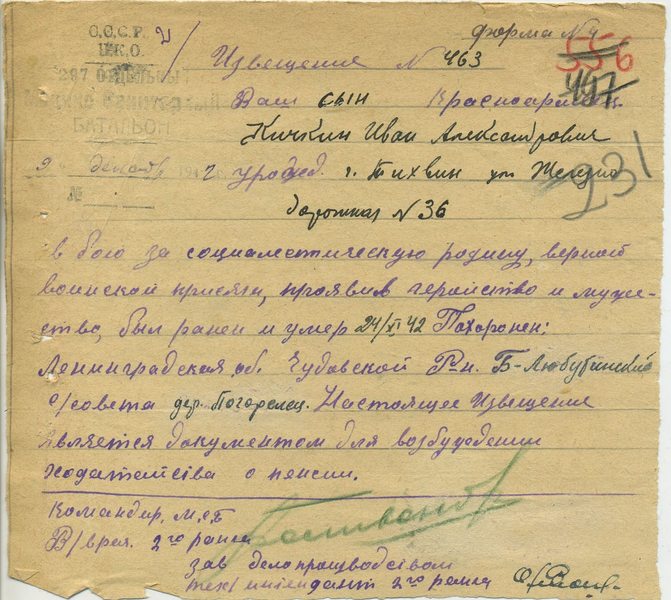 форма № 4
С.С.С.Р.
Н.К.О.
287 Отдельный
Медико Санитарный
БАТАЛЬОН
556
447
231
Извещение № 463
Ваш сын Красноармеец
Кичкин Иван Александрович
9 декабр 194 г урожд. г. Тихвин ул Железно
№
дорожная № 36
в бою за социалистическую родину, верной
воинской присяги, проявив геройство и муже-
ство, был ранен и умер 24/XI 42 Похоронен:
Ленинградская об. Чудовской Р-н. Б-Любунский
с/совета дер. Погорелец. Настоящее Извещение
является документом для возбуждении
ходатейства о пенсии.
Командир, м.с.б
В/врач. 2го ранга
зав делопроизводством
тех/интендант 2го ранга